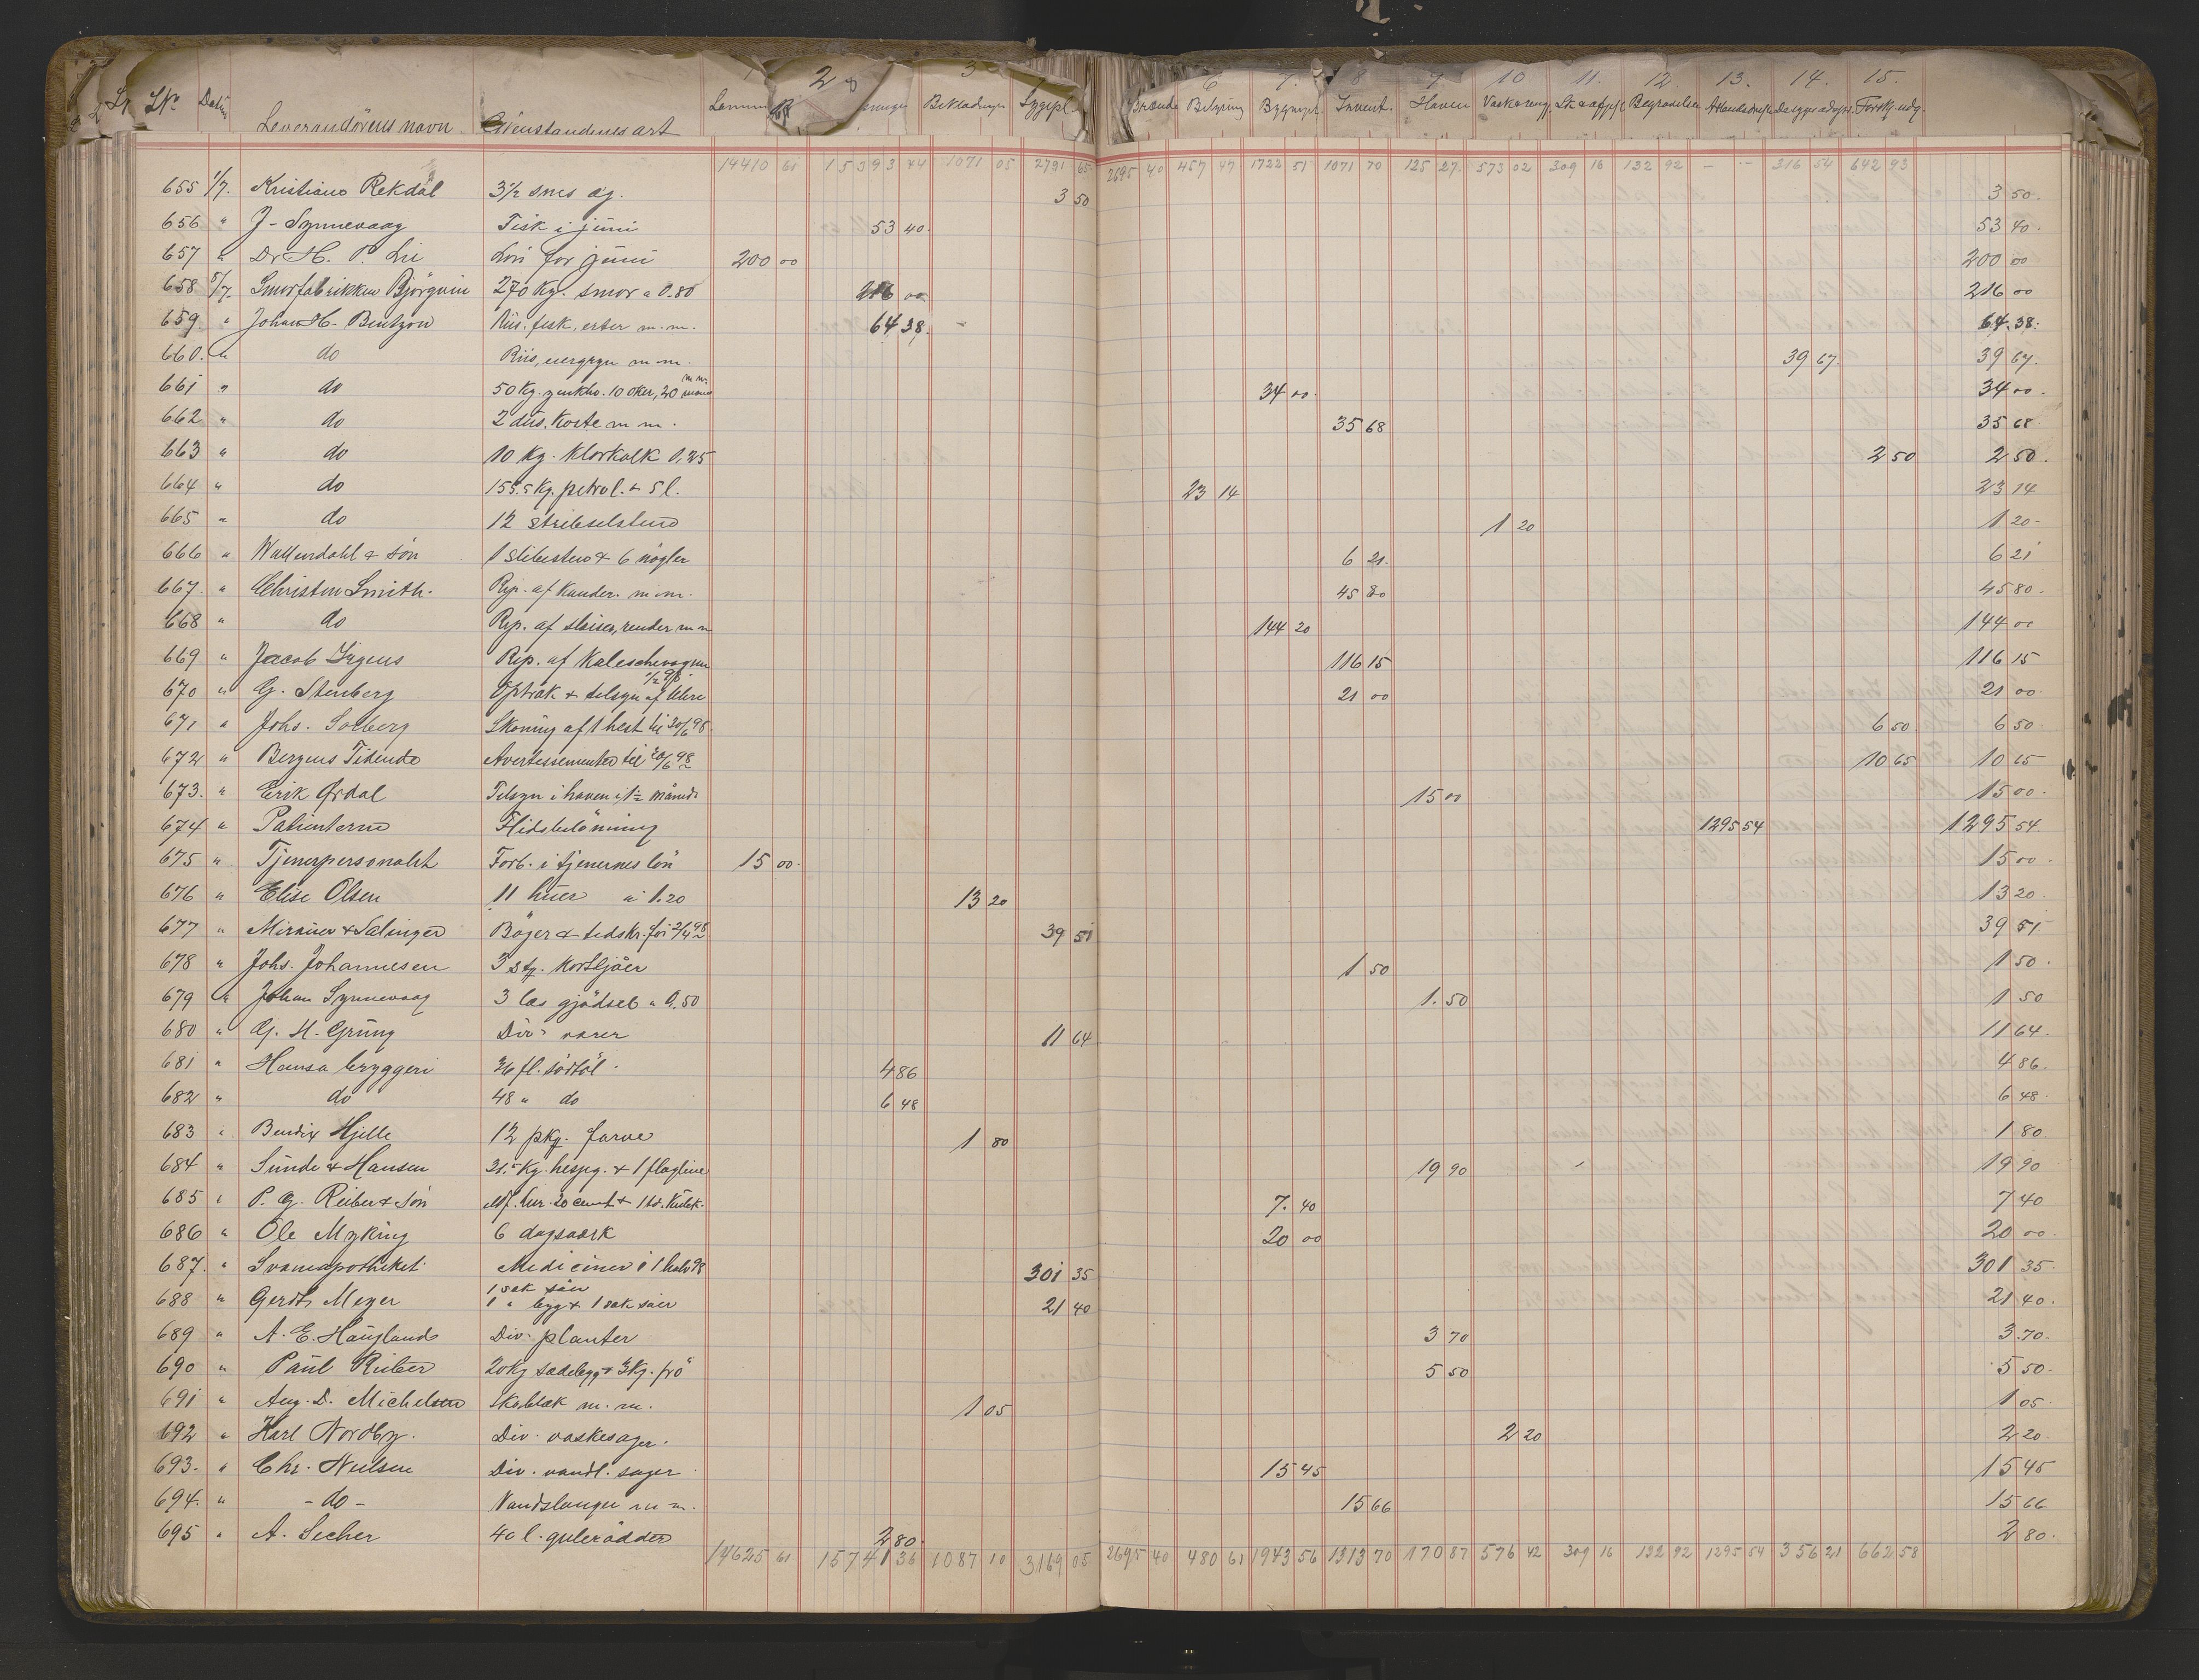 Lr. Nr. Datum Leverandörens navn Gjenstandenes art 2 3 Beklædning Sygepl. 6 7. 8 9 10 11. 12. 13. 14. 15.
Brænde Belysning Bygninger Invent. Haven Vask & reng. Begravelse Forskj. udg.
14410 61 15393 44 1071 05 2791 65 2695 40 457 47 1722 51 1071 70 125 27 573 02 309 16 132 92 - - 316 54 642 93
655 1/7. Kristiane Rekdal 3½ snes æg. 3 50 3 50.
656 " J. Synnevaag Fisk i juni 53 40. 53 40.
657 " Dr H. P. Lie Lön for juni 200 00 200 00
658 5/7. Smörfabrikken Björgvin 270 Kg. smör a 0.80 216 00 216 00
659. " Johan H. Bentzon Riis, fisk, erter m.m. 64 38. 64.38.
660. " do Riis, m.m. 39 67. 39 67.
661 " do 50 Kg. zinkhv. 10 oker, 20 m.m. 34 00. 34 00.
662 " do 2 dus. Koste m m. 35 68 35 68.
663 " do 10 Kg. Klorkalk 0.25 2 50 2 50.
664 " do 155.5 Kg. petrol. + 5 l. 23 14 23 14
665 " do 12 1 20 1 20-
666 " Wallendahl & sön 1 slibesten & 6 nögler 6 21. 6 21
667. " Christen Smith. Rep. af Kander. m.m. 45 80 45 80.
668 " do Rep. af render m m 144 20 144 00
669 " Jacob Irgens Rep. af Kaleschevognen 116 15 116 15
670 " G. Stenberg Optræk & tilsyn af Uhre 21 00 21 00.
671 " Johs. Solberg Skoning af 1 hest til 30/6 98 6 50 6 50
672 " Bergens Tidende Avertissementer til 30/6 98 10 65 10 65
673. " Erik Årdal Tilsyn i haven i 1½ måned 15 00 15 00.
674 " Patienterne Flidsbelönning 1295 54 1295 54.
675 " Tjenerpersonalet Forb. i tjenernes lön 15 00. 15 00.
676 " Elise Olsen 11 huer à 1.20 13 20 13 20.
677 " & Salinger Böger & tidskr. 39 51 39 51
678 " Johs. Johannesen 3 stk. 1 50 1 50.
679 " Johan Synnevaag 3 læs gjödsel a 0.50 1.50 1 50
680 " G. H. Grung Div. varer 11 64 11 64.
681 " Hansa bryggeri 36 fl. sötöl. 4 86 4 86.
682 " do 48 " do 6 48 6 48.
683 " Bendix Hjelle 12 pkg. farve 1 80 1 80
684 " Sunde & Hansen 31.5 Kg. hespeg. & 1 flagline 19 90 19 90
685 " P. G. Rieber & Sön 20 cement & 1 td. 7. 40 7 40
686 " Ole Myking 6 dagsværk 20 00 20 00.
687. " Svaneapotheket. Medicinen i 1 halv 98 301 35 301 35.
688 " Gerdt Meyer 1 sæk
1 " byg & 1 sæk 21 40 21 40.
689 " A. E. Haugland Div. planter 3 70 3.70.
690 " Paul Rieber 20 Kg sædebyg & 3 Kg. frö 5 50 5 50.
691 " Aug. D. Michelsen Skoblæk m. m. 1 05 1 05.
692 " Karl Nordby. Div. vaskesager. 2 20 2 20.
693. " Chr. Nielsen Div. vandl. sager 15 45 15 45
694. " - do - Vandslanger m m. 15 66 15 66
695 " A. Secher 40 l. gulerödder 2 80. 2 80.
14625 61 15741 36 1087 10 3169 05 2695 40 480 61 1943 56 1313 70 170 87 576 42 309 16 132 92 1295 54 356 21 662 58